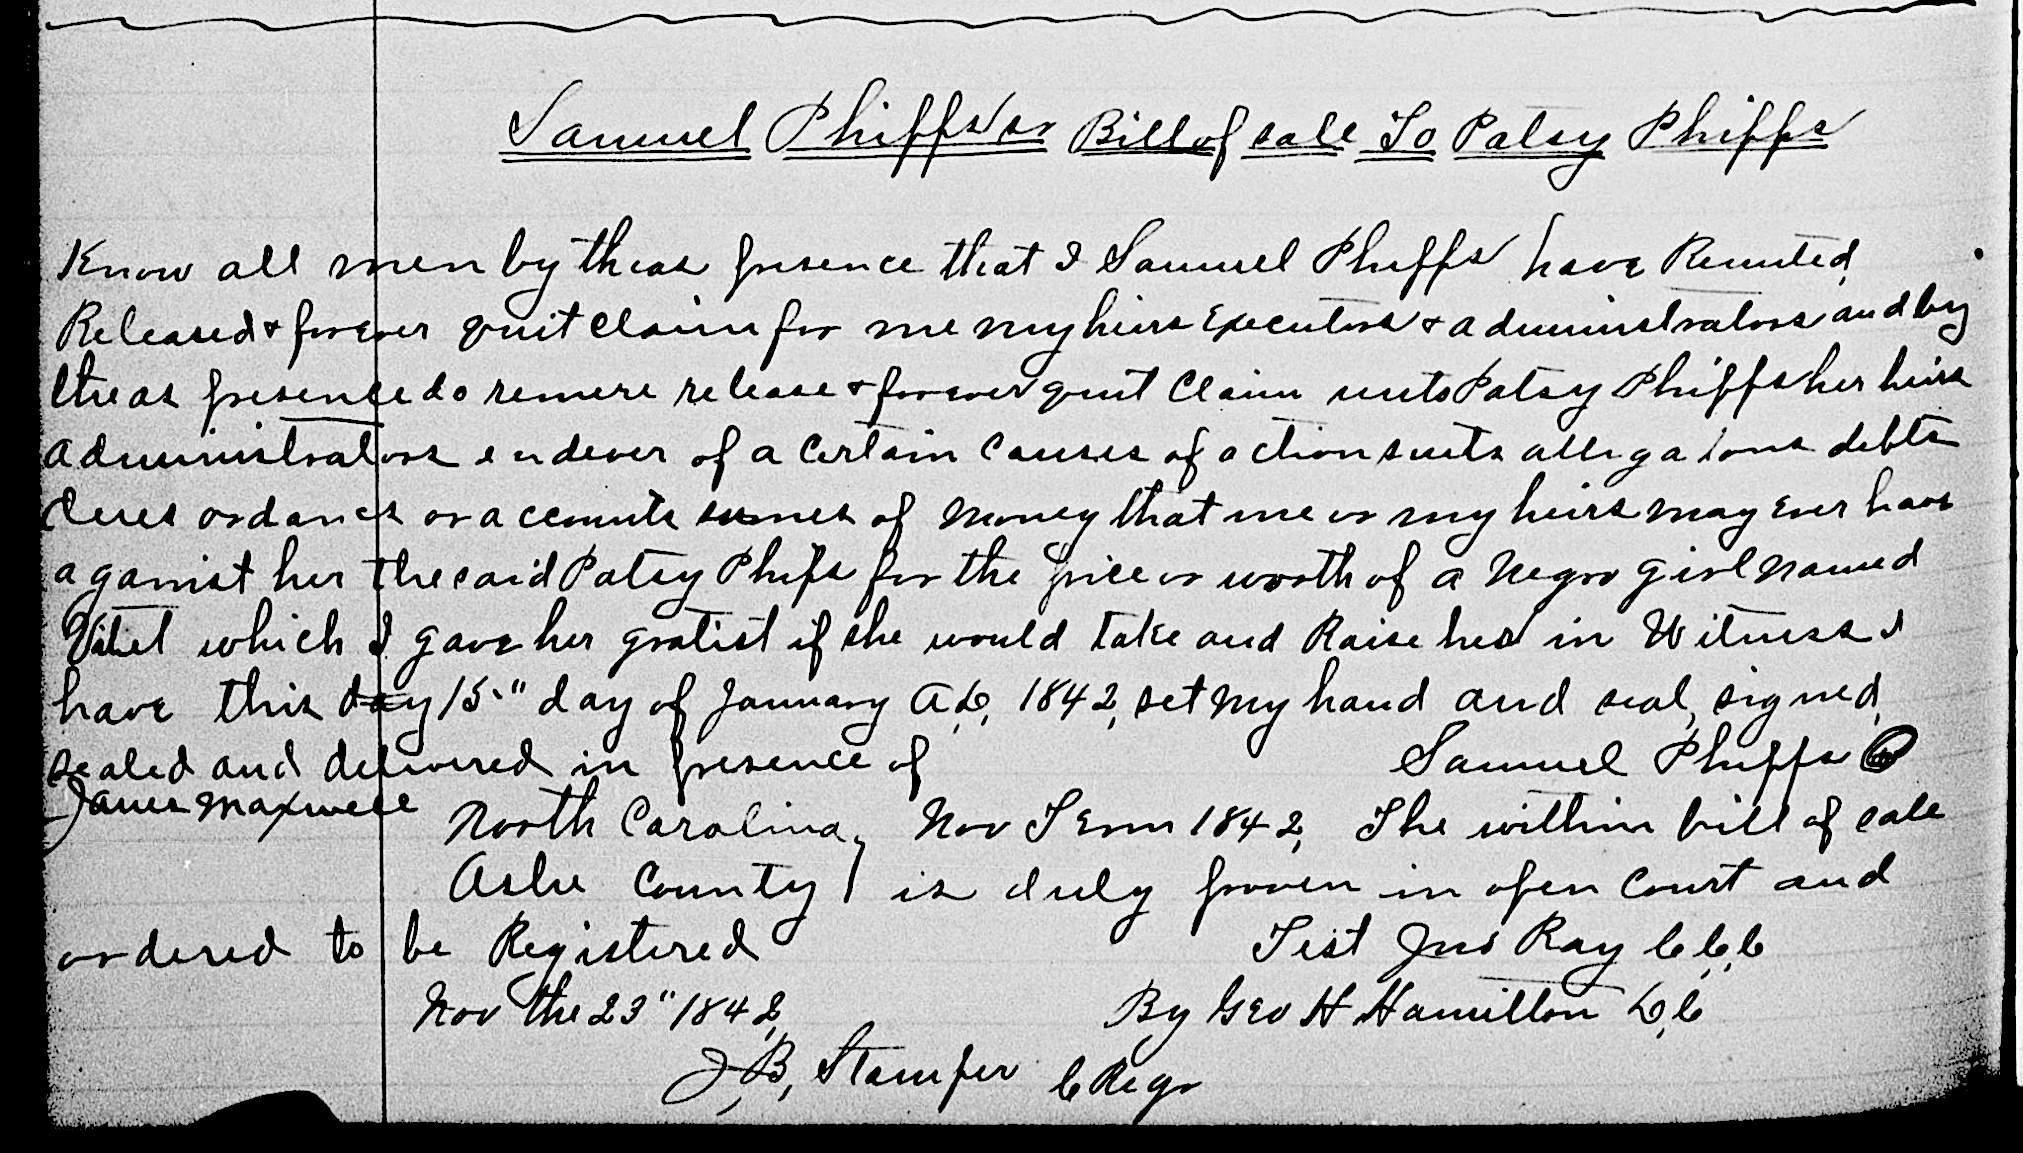 Samuel Phipps sr Bill of sale To Patsy Phipps
Know all men by theas presence that I Samuel Phipps have Remited
Released & forever quit claim for me my heirs Executors & administrators and by
theas presence do remere release & forever quit Claim unto Patsy Phipps her heirs
administrators endever of a certain causes of action suits allegations debts
dues or accounts sumes of money that me or my heirs may Ever have
against her the said Patsy Phips for the price or worth of a Negro girl named
which I gave her gratist if she would take and Raise her in Witness I
have this day 15" day of January A.D, 1842, set my hand and seal, signed
sealed and delivered in presence of Samuel Phipps
James Maxwell
North Carolina, Nov Term 1842, The within bill of sale
Ashe County is duly proven in open Court and
ordered to be Registered Test Jno Ray C,C,C
Nov the 23" 1842, By Geo H Hamilton D,C
J,B, Stamper C Regr